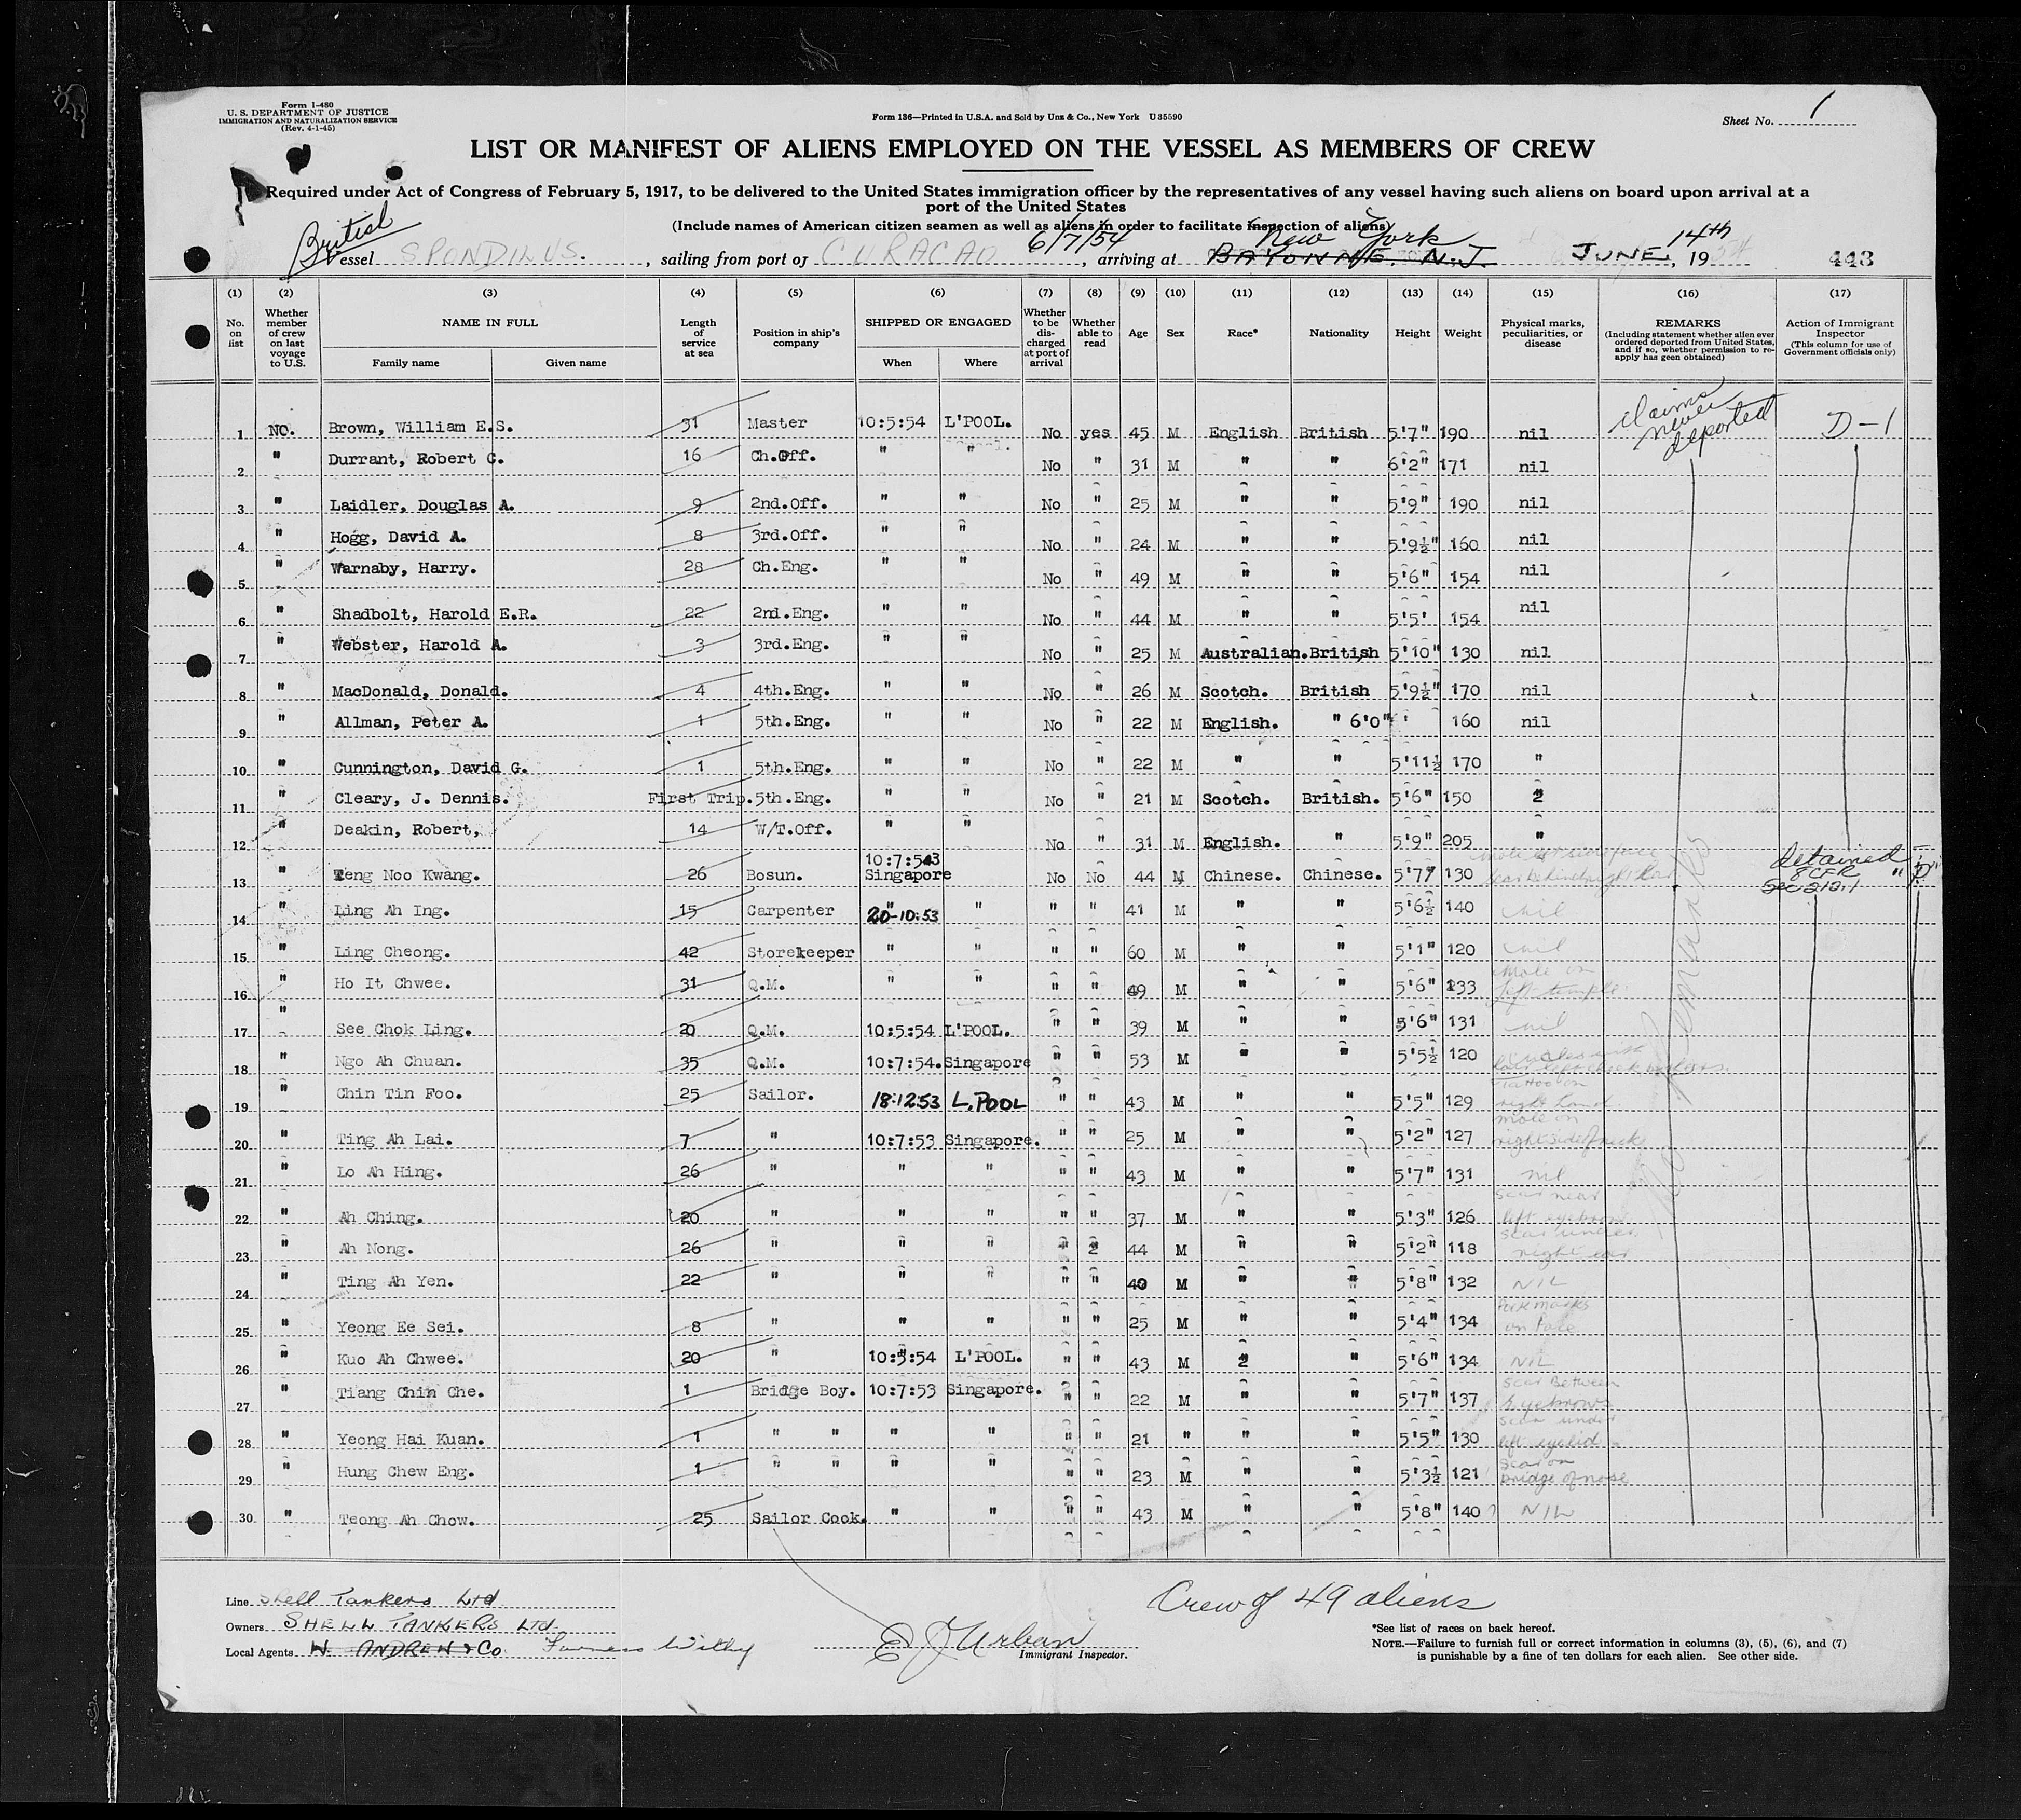 Form I-480
U. S. DEPARTMENT OF JUSTICE
IMMIGRATION AND NATURALIZATION SERVICE
(Rev. 4-1-45)
Form 136—Printed in U.S.A. and Sold by Unz & Co., New York U 35590
Sheet No. 1
LIST OR MANIFEST OF ALIENS EMPLOYED ON THE VESSEL AS MEMBERS OF CREW
Required under Act of Congress of February 5, 1917, to be delivered to the United States immigration officer by the representatives of any vessel having such aliens on board upon arrival at a
port of the United States
(Include names of American citizen seamen as well as aliens in order to facilitate inspection of aliens)
British 6/7/54 New York 14th
Vessel SPONDILUS. , sailing from port of CURACAO , arriving at BAYONNE. N.J. JUNE, 1954 443
(1) (2) (3) (4) (5) (6) (7) (8) (9) (10) (11) (12) (13) (14) (15) (16) (17)
No. on list
Whether member of crew on last voyage to U.S.
NAME IN FULL
Family name Given name
Length of service at sea
Position in ship's company
SHIPPED OR ENGAGED
When Where
Whether to be discharged at port of arrival
Whether able to read
Age
Sex
Race*
Nationality
Height
Weight
Physical marks, peculiarities, or disease
REMARKS
(Including statement whether alien ever ordered deported from United States, and if so, whether permission to re-apply has geen obtained)
Action of Immigrant Inspector
(This column for use of Government officials only)
1 NO. Brown, William E.S. 31 Master 10:5:54 L'POOL. No yes 45 M English British 5'7" 190 nil claims never deported D-1
2 " Durrant, Robert C. 16 Ch.Off. " " No " 31 M " " 6'2" 171 nil
3 " Laidler, Douglas A. 9 2nd.Off. " " No " 25 M " " 5'9" 190 nil
4 " Hogg, David A. 8 3rd.Off. " " No " 24 M " " 5'9½" 160 nil
5 " Warnaby, Harry. 28 Ch.Eng. " " No " 49 M " " 5'6" 154 nil
6 " Shadbolt, Harold E.R. 22 2nd.Eng. " " No " 44 M " " 5'5' 154 nil
7 " Webster, Harold A. 3 3rd.Eng. " " No " 25 M Australian. British 5'10" 130 nil
8 " MacDonald, Donald. 4 4th.Eng. " " No " 26 M Scotch. British 5'9½" 170 nil
9 " Allman, Peter A. 1 5th.Eng. " " No " 22 M English. " 6'0" 160 nil
10 " Cunnington, David G. 1 5th.Eng. " " No " 22 M " " 5'11½ 170 "
11 " Cleary, J. Dennis. First Trip. 5th.Eng. " " No " 21 M Scotch. British. 5'6" 150 "
12 " Deakin, Robert, 14 W/T.Off. " " No " 31 M English. " 5'9" 205 "
13 " Teng Noo Kwang. 26 Bosun. 10:7:53 Singapore No No 44 M Chinese. Chinese. 5'7" 130 detained 8 CFR Sec 212.1 "D"
14 " Ling Ah Ing. 15 Carpenter 20-10:53 " " " 41 M " " 5'6½ 140 nil
15 " Ling Cheong. 42 Storekeeper " " " " 60 M " " 5'1" 120 nil
16 " Ho It Chwee. 31 Q.M. " " " " 49 M " " 5'6" 133 Mole on left temple
17 " See Chok Ling. 20 Q.M. 10:5:54 L'POOL. " " 39 M " " 5'6" 131 nil
18 " Ngo Ah Chuan. 35 Q.M. 10:7:54. Singapore " " 53 M " " 5'5½ 120
19 " Chin Tin Foo. 25 Sailor. 18:12:53 L.POOL " " 43 M " " 5'5" 129 Tattoo on right hand
20 " Ting Ah Lai. 7 " 10:7:53 Singapore. " " 25 M " " 5'2" 127 mole on right side of neck
21 " Lo Ah Hing. 26 " " " " " 43 M " " 5'7" 131 nil
22 " Ah Ching. 20 " " " " " 37 M " " 5'3" 126 scar near left eyebrow
23 " Ah Nong. 26 " " " " 2 44 M " " 5'2" 118 scar under right ear
24 " Ting Ah Yen. 22 " " " " " 40 M " " 5'8" 132 NIL
25 " Yeong Ee Sei. 8 " " " " " 25 M " " 5'4" 134 Pock marks on face
26 " Kuo Ah Chwee. 20 " 10:5:54 L'POOL. " " 43 M 2 " 5'6" 134 NIL
27 " Tiang Chin Che. 1 Bridge Boy. 10:7:53 Singapore. " " 22 M " " 5'7" 137 scar Between Eyebrows
28 " Yeong Hai Kuan. 1 " " " " " " 21 " " " 5'5" 130 scar under left eyelid
29 " Hung Chew Eng. 1 " " " " " " 23 M " " 5'3½ 121 scar on bridge of nose
30 " Teong Ah Chow. 25 Sailor Cook. " " " " 43 M " " 5'8" 140 NIL
No Remarks
Line Shell Tankers Ltd
Owners SHELL TANKERS Ltd.
Local Agents W. ANDREW & Co. Furness Withy
E J Urban
Immigrant Inspector.
Crew of 49 aliens
*See list of races on back hereof.
NOTE.—Failure to furnish full or correct information in columns (3), (5), (6), and (7)
is punishable by a fine of ten dollars for each alien. See other side.